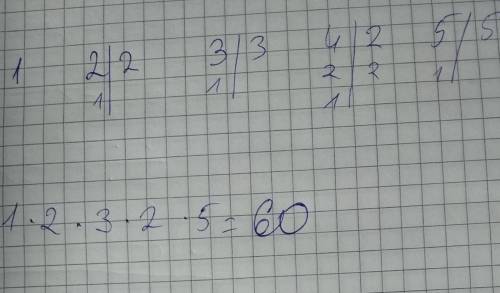 1 2|2 3|3 4|2 5|5
1| 1| 2|2 1|
1|
1 · 2 · 3 · 2 · 5 = 60